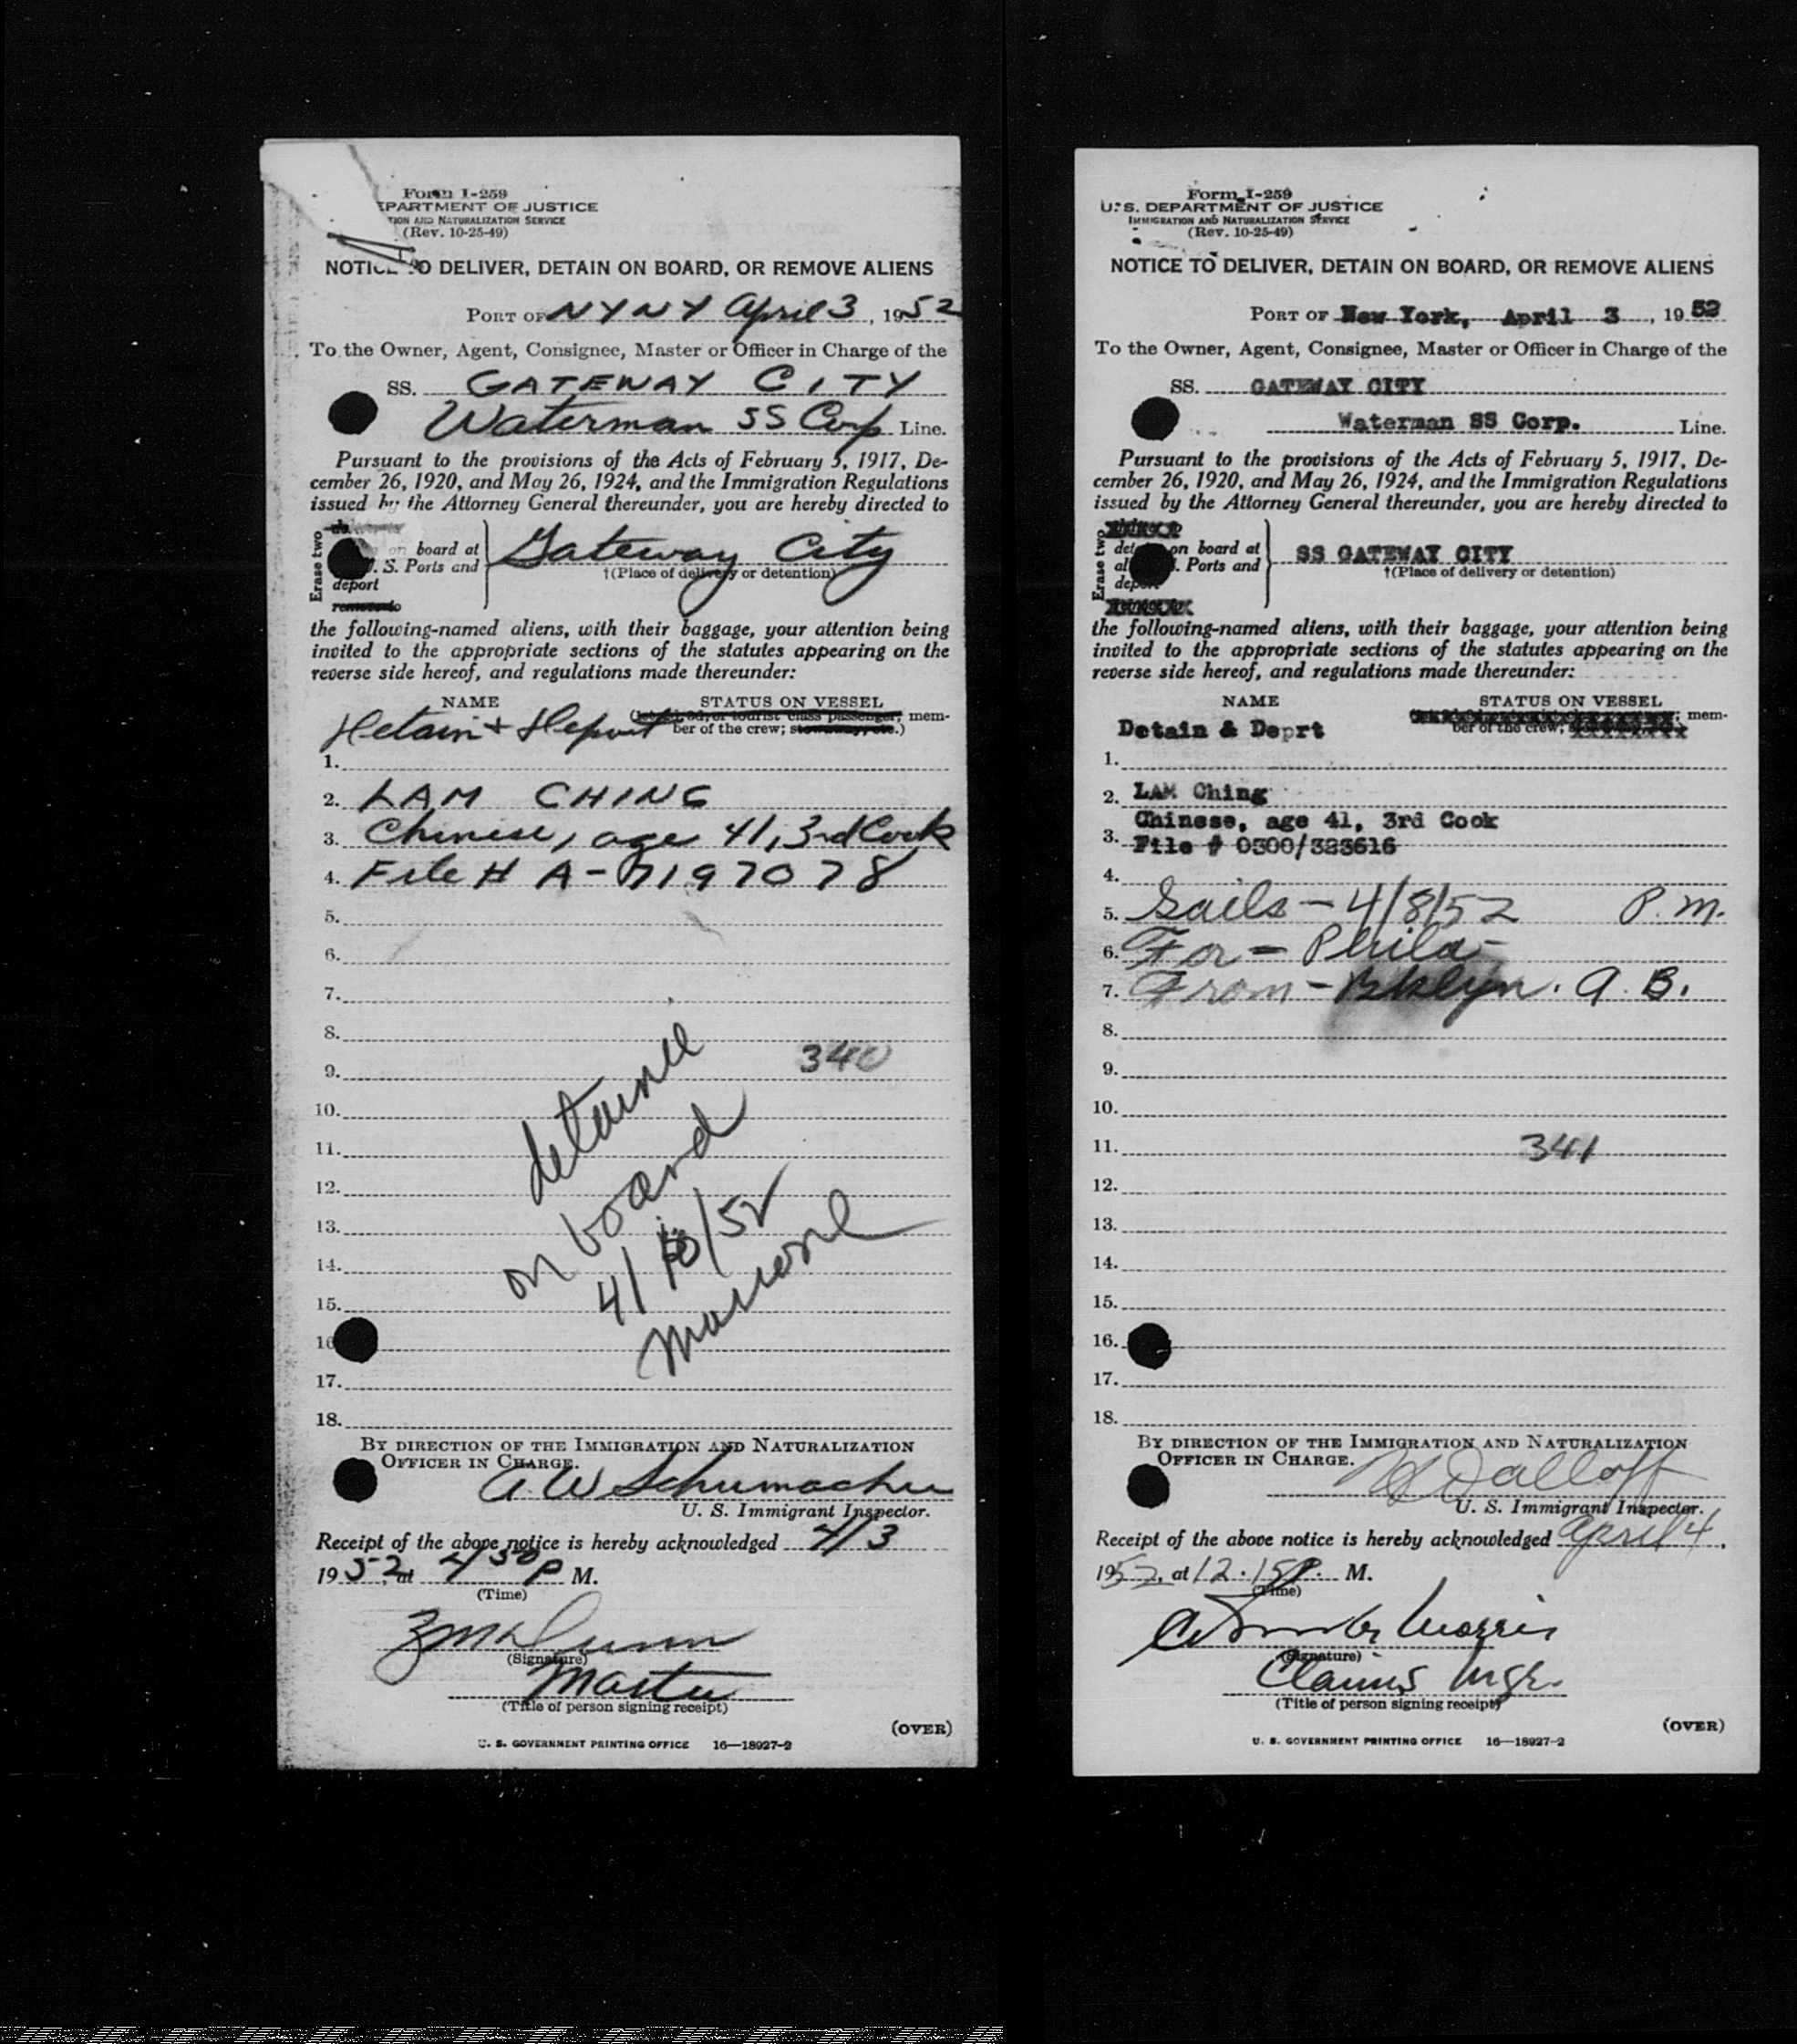 Form I-259
EPARTMENT OF JUSTICE
TION AND NATURALIZATION SERVICE
(Rev. 10-25-49)
NOTICE TO DELIVER, DETAIN ON BOARD, OR REMOVE ALIENS
PORT OF NYNY April 3, 1952
To the Owner, Agent, Consignee, Master or Officer in Charge of the
SS. GATEWAY CITY
Waterman SS Corp Line.
Pursuant to the provisions of the Acts of February 5, 1917, De-
cember 26, 1920, and May 26, 1924, and the Immigration Regulations
issued by the Attorney General thereunder, you are hereby directed to
Erase two
on board at
. S. Ports and
deport
remove to
Gateway City
†(Place of delivery or detention)
the following-named aliens, with their baggage, your attention being
invited to the appropriate sections of the statutes appearing on the
reverse side hereof, and regulations made thereunder:
NAME STATUS ON VESSEL
Detain + Deport (1st, 2d, 3d, or tourist class passenger; mem-
ber of the crew; stowaway, etc.)
1.
2. LAM CHING
3. Chinese, age 41, 3rd Cook
4. File # A-7197078
5.
6.
7.
8.
9. 340
10.
11.
12.
13.
14.
15.
16
17.
18.
on board
BY DIRECTION OF THE IMMIGRATION AND NATURALIZATION
OFFICER IN CHARGE.
A W Schumacher
U. S. Immigrant Inspector.
Receipt of the above notice is hereby acknowledged 4/3
1952, at 4 30 P M.
(Time)
(Signature)
Master
(Title of person signing receipt)
(OVER)
U. S. GOVERNMENT PRINTING OFFICE 16—18927-2
Form I-259
U. S. DEPARTMENT OF JUSTICE
IMMIGRATION AND NATURALIZATION SERVICE
(Rev. 10-25-49)
NOTICE TO DELIVER, DETAIN ON BOARD, OR REMOVE ALIENS
PORT OF New York, April 3, 1952
To the Owner, Agent, Consignee, Master or Officer in Charge of the
SS. GATEWAY CITY
Waterman SS Corp. Line.
Pursuant to the provisions of the Acts of February 5, 1917, De-
cember 26, 1920, and May 26, 1924, and the Immigration Regulations
issued by the Attorney General thereunder, you are hereby directed to
Erase two
det on board at
al . Ports and
dep
SS GATEWAY CITY
†(Place of delivery or detention)
the following-named aliens, with their baggage, your attention being
invited to the appropriate sections of the statutes appearing on the
reverse side hereof, and regulations made thereunder:
NAME STATUS ON VESSEL
Detain & Deprt mem-
ber of the crew;
1.
2. LAM Ching
Chinese, age 41, 3rd Cook
3. File # 0300/323616
4.
5. Sails - 4/8/52 P.M.
6. For - Phila -
7. From - Bklyn. A. B.
8.
9.
10.
11. 341
12.
13.
14.
15.
16.
17.
18.
BY DIRECTION OF THE IMMIGRATION AND NATURALIZATION
OFFICER IN CHARGE.
U. S. Immigrant Inspector.
Receipt of the above notice is hereby acknowledged April 4,
1952, at 12.15 P. M.
(Time)
Morris
(Signature)
Claims Mgr.
(Title of person signing receipt)
(OVER)
U. S. GOVERNMENT PRINTING OFFICE 16—18927-2